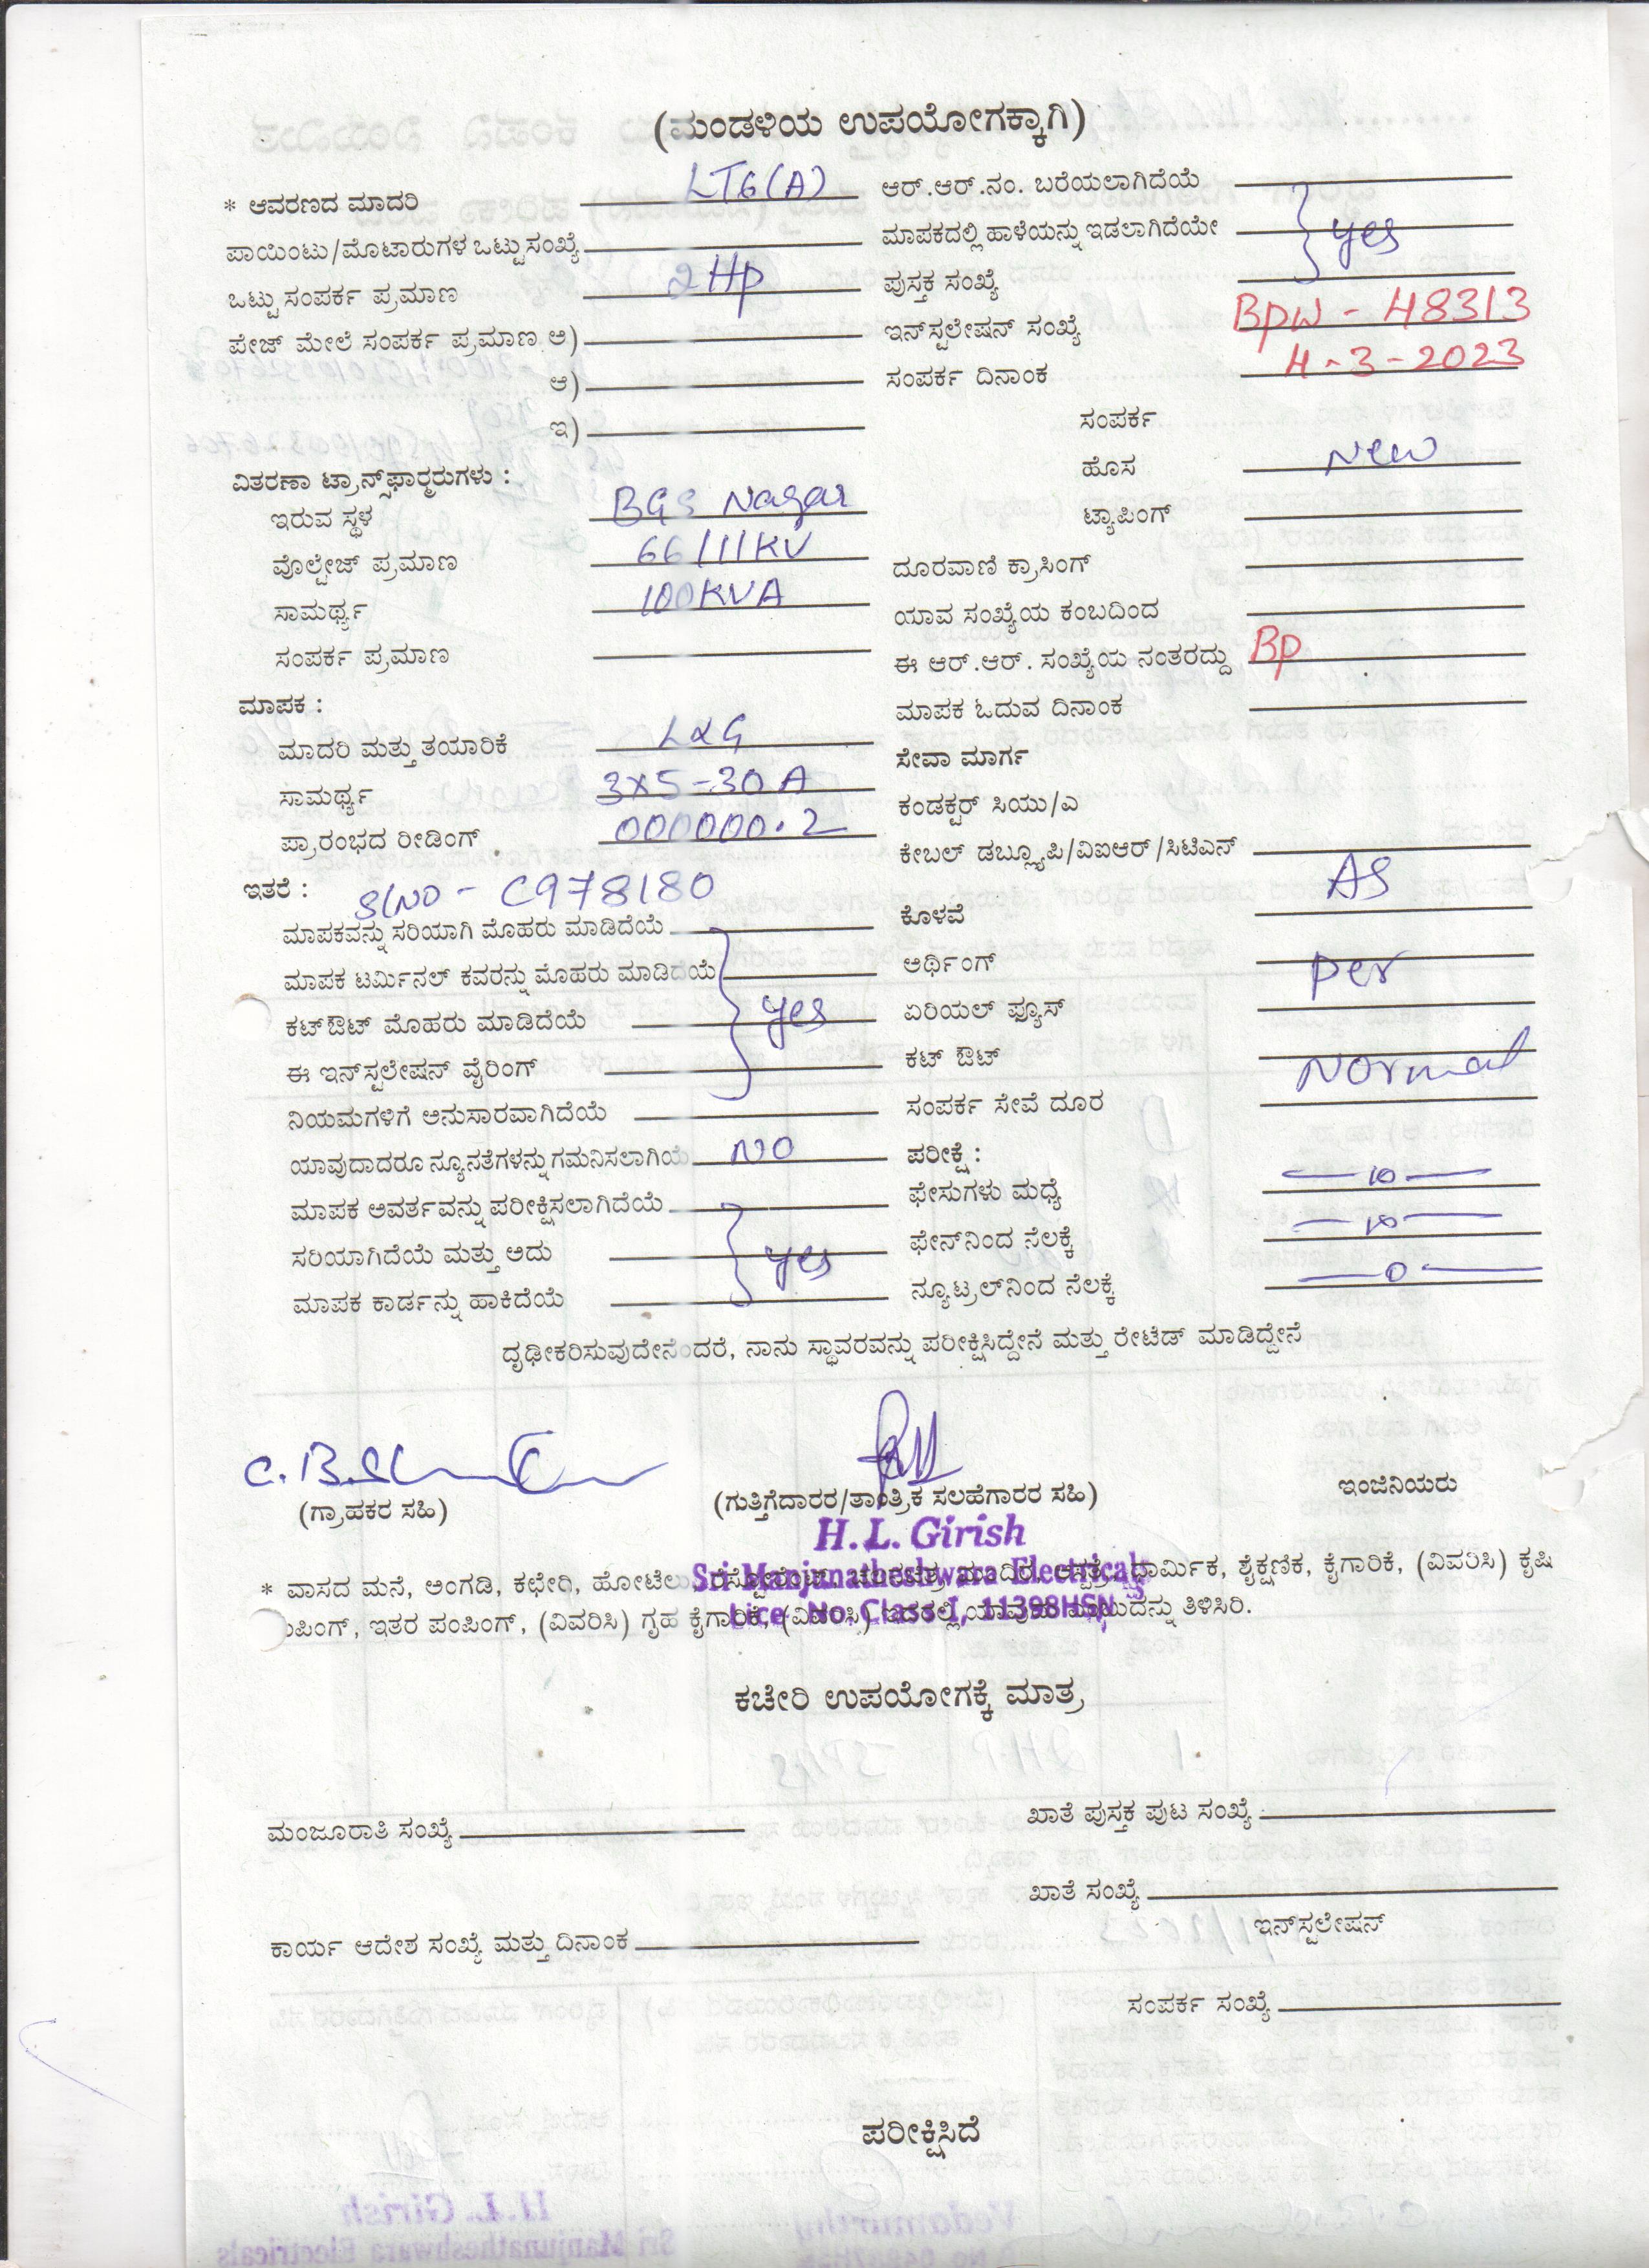 (ಮಂಡಳಿಯ ಉಪಯೋಗಕ್ಕಾಗಿ)
* ಆವರಣದ ಮಾದರಿ LT6(A)
ಪಾಯಿಂಟು/ಮೊಟಾರುಗಳ ಒಟ್ಟು ಸಂಖ್ಯೆ
ಒಟ್ಟು ಸಂಪರ್ಕ ಪ್ರಮಾಣ 2Hp
ಪೇಜ್ ಮೇಲೆ ಸಂಪರ್ಕ ಪ್ರಮಾಣ ಅ)
ಆ)
ಇ)
ವಿತರಣಾ ಟ್ರಾನ್ಸ್‌ಫಾರ್‍ಮರುಗಳು :
ಇರುವ ಸ್ಥಳ BGS Nagar
ವೊಲ್ಟೇಜ್ ಪ್ರಮಾಣ 66/11KV
ಸಾಮರ್ಥ್ಯ 100KVA
ಸಂಪರ್ಕ ಪ್ರಮಾಣ
ಮಾಪಕ :
ಮಾದರಿ ಮತ್ತು ತಯಾರಿಕೆ L&G
ಸಾಮರ್ಥ್ಯ 3x5-30A
ಪ್ರಾರಂಭದ ರೀಡಿಂಗ್ 000000.2
ಇತರೆ : S/NO - C978180
ಮಾಪಕವನ್ನು ಸರಿಯಾಗಿ ಮೊಹರು ಮಾಡಿದೆಯೆ
ಮಾಪಕ ಟರ್ಮಿನಲ್ ಕವರನ್ನು ಮೊಹರು ಮಾಡಿದೆಯೆ
ಕಟ್‌ಔಟ್ ಮೊಹರು ಮಾಡಿದೆಯೆ yes
ಈ ಇನ್‌ಸ್ಟಲೇಷನ್ ವೈರಿಂಗ್
ನಿಯಮಗಳಿಗೆ ಅನುಸಾರವಾಗಿದೆಯೆ
ಯಾವುದಾದರೂ ನ್ಯೂನತೆಗಳನ್ನು ಗಮನಿಸಲಾಗಿಯೆ NO
ಮಾಪಕ ಅವರ್ತವನ್ನು ಪರೀಕ್ಷಿಸಲಾಗಿದೆಯೆ
ಸರಿಯಾಗಿದೆಯೆ ಮತ್ತು ಅದು yes
ಮಾಪಕ ಕಾರ್ಡನ್ನು ಹಾಕಿದೆಯೆ
ಆರ್.ಆರ್.ನಂ. ಬರೆಯಲಾಗಿದೆಯೆ
ಮಾಪಕದಲ್ಲಿ ಹಾಳೆಯನ್ನು ಇಡಲಾಗಿದೆಯೇ yes
ಪುಸ್ತಕ ಸಂಖ್ಯೆ
ಇನ್‌ಸ್ಟಲೇಷನ್ ಸಂಖ್ಯೆ Bpw - 48313
ಸಂಪರ್ಕ ದಿನಾಂಕ 4-3-2023
ಸಂಪರ್ಕ
ಹೊಸ New
ಟ್ಯಾಪಿಂಗ್
ದೂರವಾಣಿ ಕ್ರಾಸಿಂಗ್
ಯಾವ ಸಂಖ್ಯೆಯ ಕಂಬದಿಂದ
ಈ ಆರ್.ಆರ್. ಸಂಖ್ಯೆಯ ನಂತರದ್ದು Bp
ಮಾಪಕ ಓದುವ ದಿನಾಂಕ
ಸೇವಾ ಮಾರ್ಗ
ಕಂಡಕ್ಟರ್ ಸಿಯು/ಎ
ಕೇಬಲ್ ಡಬ್ಲ್ಯೂಪಿ/ವಿಐಆರ್/ಸಿಟಿಎನ್
ಕೊಳವೆ AS
ಅರ್ಥಿಂಗ್ per
ಏರಿಯಲ್ ಫ್ಯೂಸ್
ಕಟ್ ಔಟ್ Normal
ಸಂಪರ್ಕ ಸೇವೆ ದೂರ
ಪರೀಕ್ಷೆ :
ಫೇಸುಗಳು ಮಧ್ಯೆ —10—
ಫೇನ್‌ನಿಂದ ನೆಲಕ್ಕೆ —10—
ನ್ಯೂಟ್ರಲ್‌ನಿಂದ ನೆಲಕ್ಕೆ —0—
ದೃಢೀಕರಿಸುವುದೇನೆಂದರೆ, ನಾನು ಸ್ಥಾವರವನ್ನು ಪರೀಕ್ಷಿಸಿದ್ದೇನೆ ಮತ್ತು ರೇಟೆಡ್ ಮಾಡಿದ್ದೇನೆ
(ಗ್ರಾಹಕರ ಸಹಿ) (ಗುತ್ತಿಗೆದಾರರ/ತಾಂತ್ರಿಕ ಸಲಹೆಗಾರರ ಸಹಿ) ಇಂಜಿನಿಯರು
H. L. Girish
Sri Manjunatheshwara Electricals
Lice. No. Class-I, 11398HSN
* ವಾಸದ ಮನೆ, ಅಂಗಡಿ, ಕಛೇರಿ, ಹೋಟೆಲು, ಧಾರ್ಮಿಕ, ಶೈಕ್ಷಣಿಕ, ಕೈಗಾರಿಕೆ, (ವಿವರಿಸಿ) ಕೃಷಿ
ಪಿಂಗ್, ಇತರ ಪಂಪಿಂಗ್, (ವಿವರಿಸಿ) ಗೃಹ ಕೈಗಾರಿಕೆ, (ವಿವರಿಸಿ) ತಿಳಿಸಿರಿ.
ಕಚೇರಿ ಉಪಯೋಗಕ್ಕೆ ಮಾತ್ರ
ಮಂಜೂರಾತಿ ಸಂಖ್ಯೆ ಖಾತೆ ಪುಸ್ತಕ ಪುಟ ಸಂಖ್ಯೆ
ಖಾತೆ ಸಂಖ್ಯೆ
ಇನ್‌ಸ್ಟಲೇಷನ್
ಕಾರ್ಯ ಆದೇಶ ಸಂಖ್ಯೆ ಮತ್ತು ದಿನಾಂಕ
ಸಂಪರ್ಕ ಸಂಖ್ಯೆ
ಪರೀಕ್ಷಿಸಿದೆ